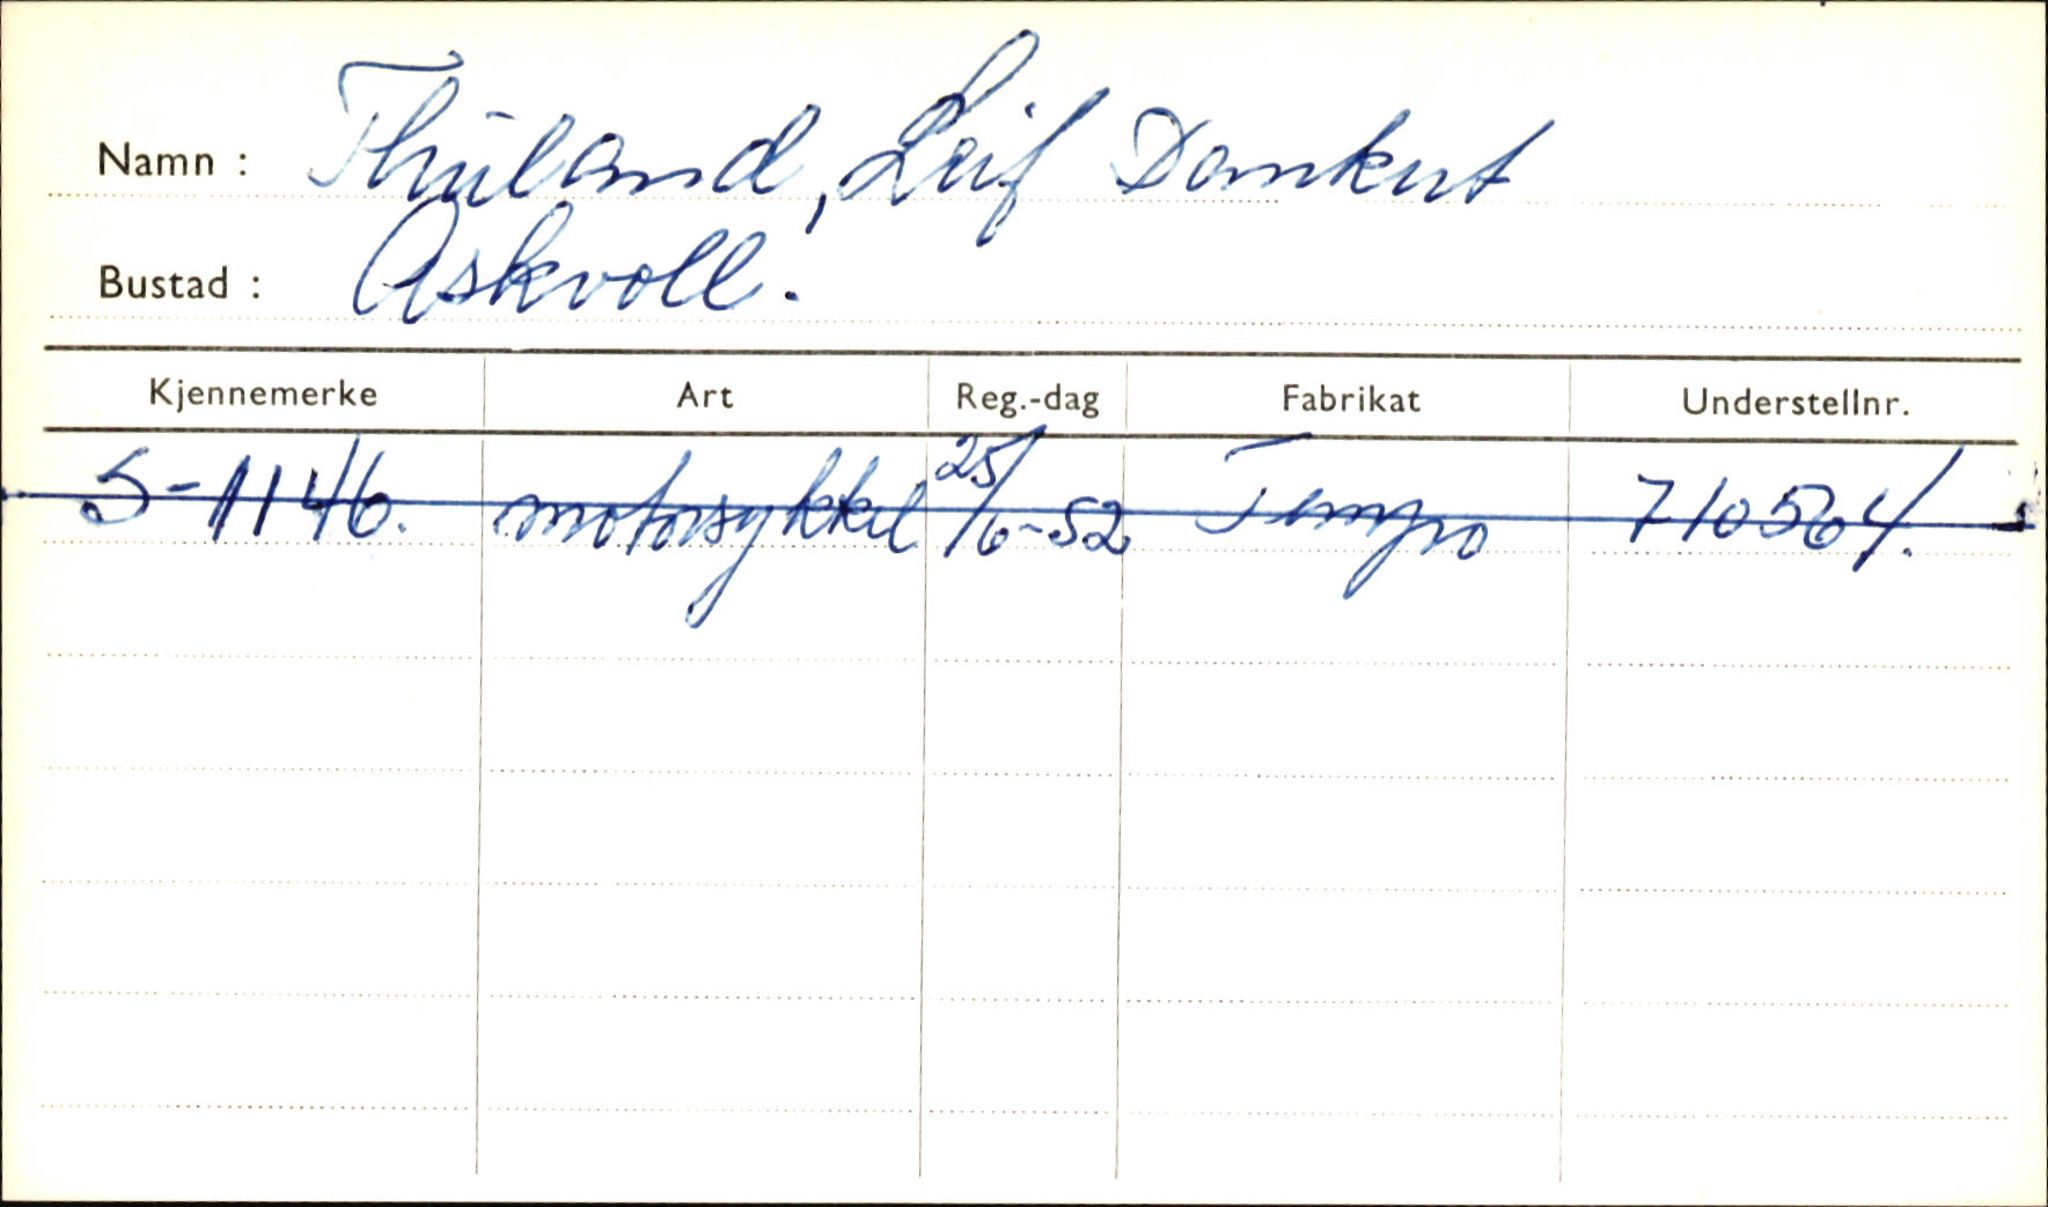 Namn : Thuland, Leif Dankert
Bustad : Askvoll.
Kjennemerke Art Reg.-dag Fabrikat Understellnr.
S-1146. motorsykkel 25/6-52 Tempo 710564.